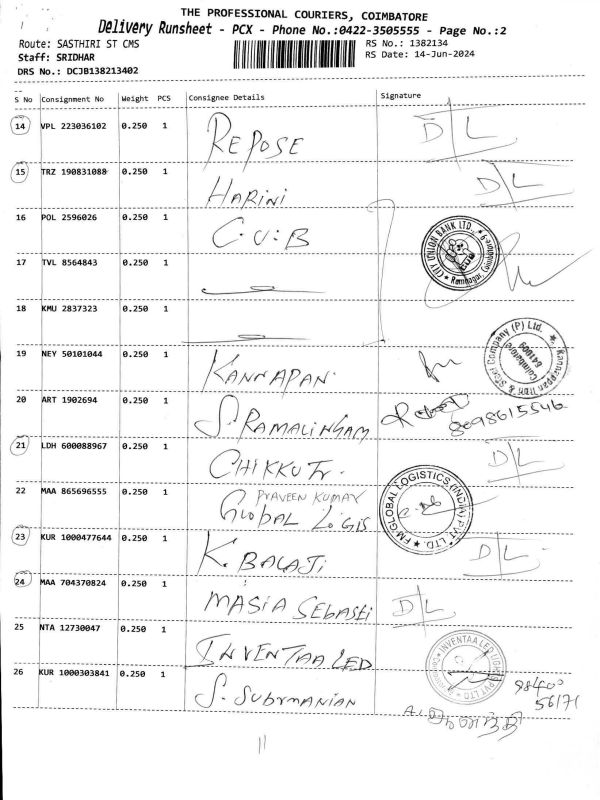 THE PROFESSIONAL COURIERS, COIMBATORE
Delivery Runsheet - PCX - Phone No.:0422-3505555 - Page No.:2
Route: SASTHIRI ST CMS
RS No.: 1382134
Staff: SRIDHAR
RS Date: 14-Jun-2024
DRS No.: DCJB138213402
S No Consignment No Weight PCS Consignee Details Signature
14 VPL 223036102 0.250 1 REPOSE D/L
15 TRZ 190831088 0.250 1 HARINI D/L
16 POL 2596026 0.250 1 C.U.B
CITY UNION BANK LTD.
CUB
Ramnagar, Coimbatore-9
17 TVL 8564843 0.250 1
18 KMU 2837323 0.250 1
19 NEY 50101044 0.250 1 KANNAPAN
Kannappan Iron & Steel Company (P) Ltd.
Coimbatore
641009
20 ART 1902694 0.250 1 S. RAMALINGAM
8098615546
21 LDH 600088967 0.250 1 CHIKKU Tr. D/L
22 MAA 865696555 0.250 1 PRAVEEN KUMAR
GLOBAL LOGIS
FM GLOBAL LOGISTICS (INDIA) PVT. LTD.
23 KUR 1000477644 0.250 1 K. BALAJI D/L
24 MAA 704370824 0.250 1 MASIA SEBASTI D/L
25 NTA 12730047 0.250 1 INVENTAA LED
INVENTAA LED LIGHTS PVT LTD
26 KUR 1000303841 0.250 1 S. SUBRMANIAN
98400
56171
11